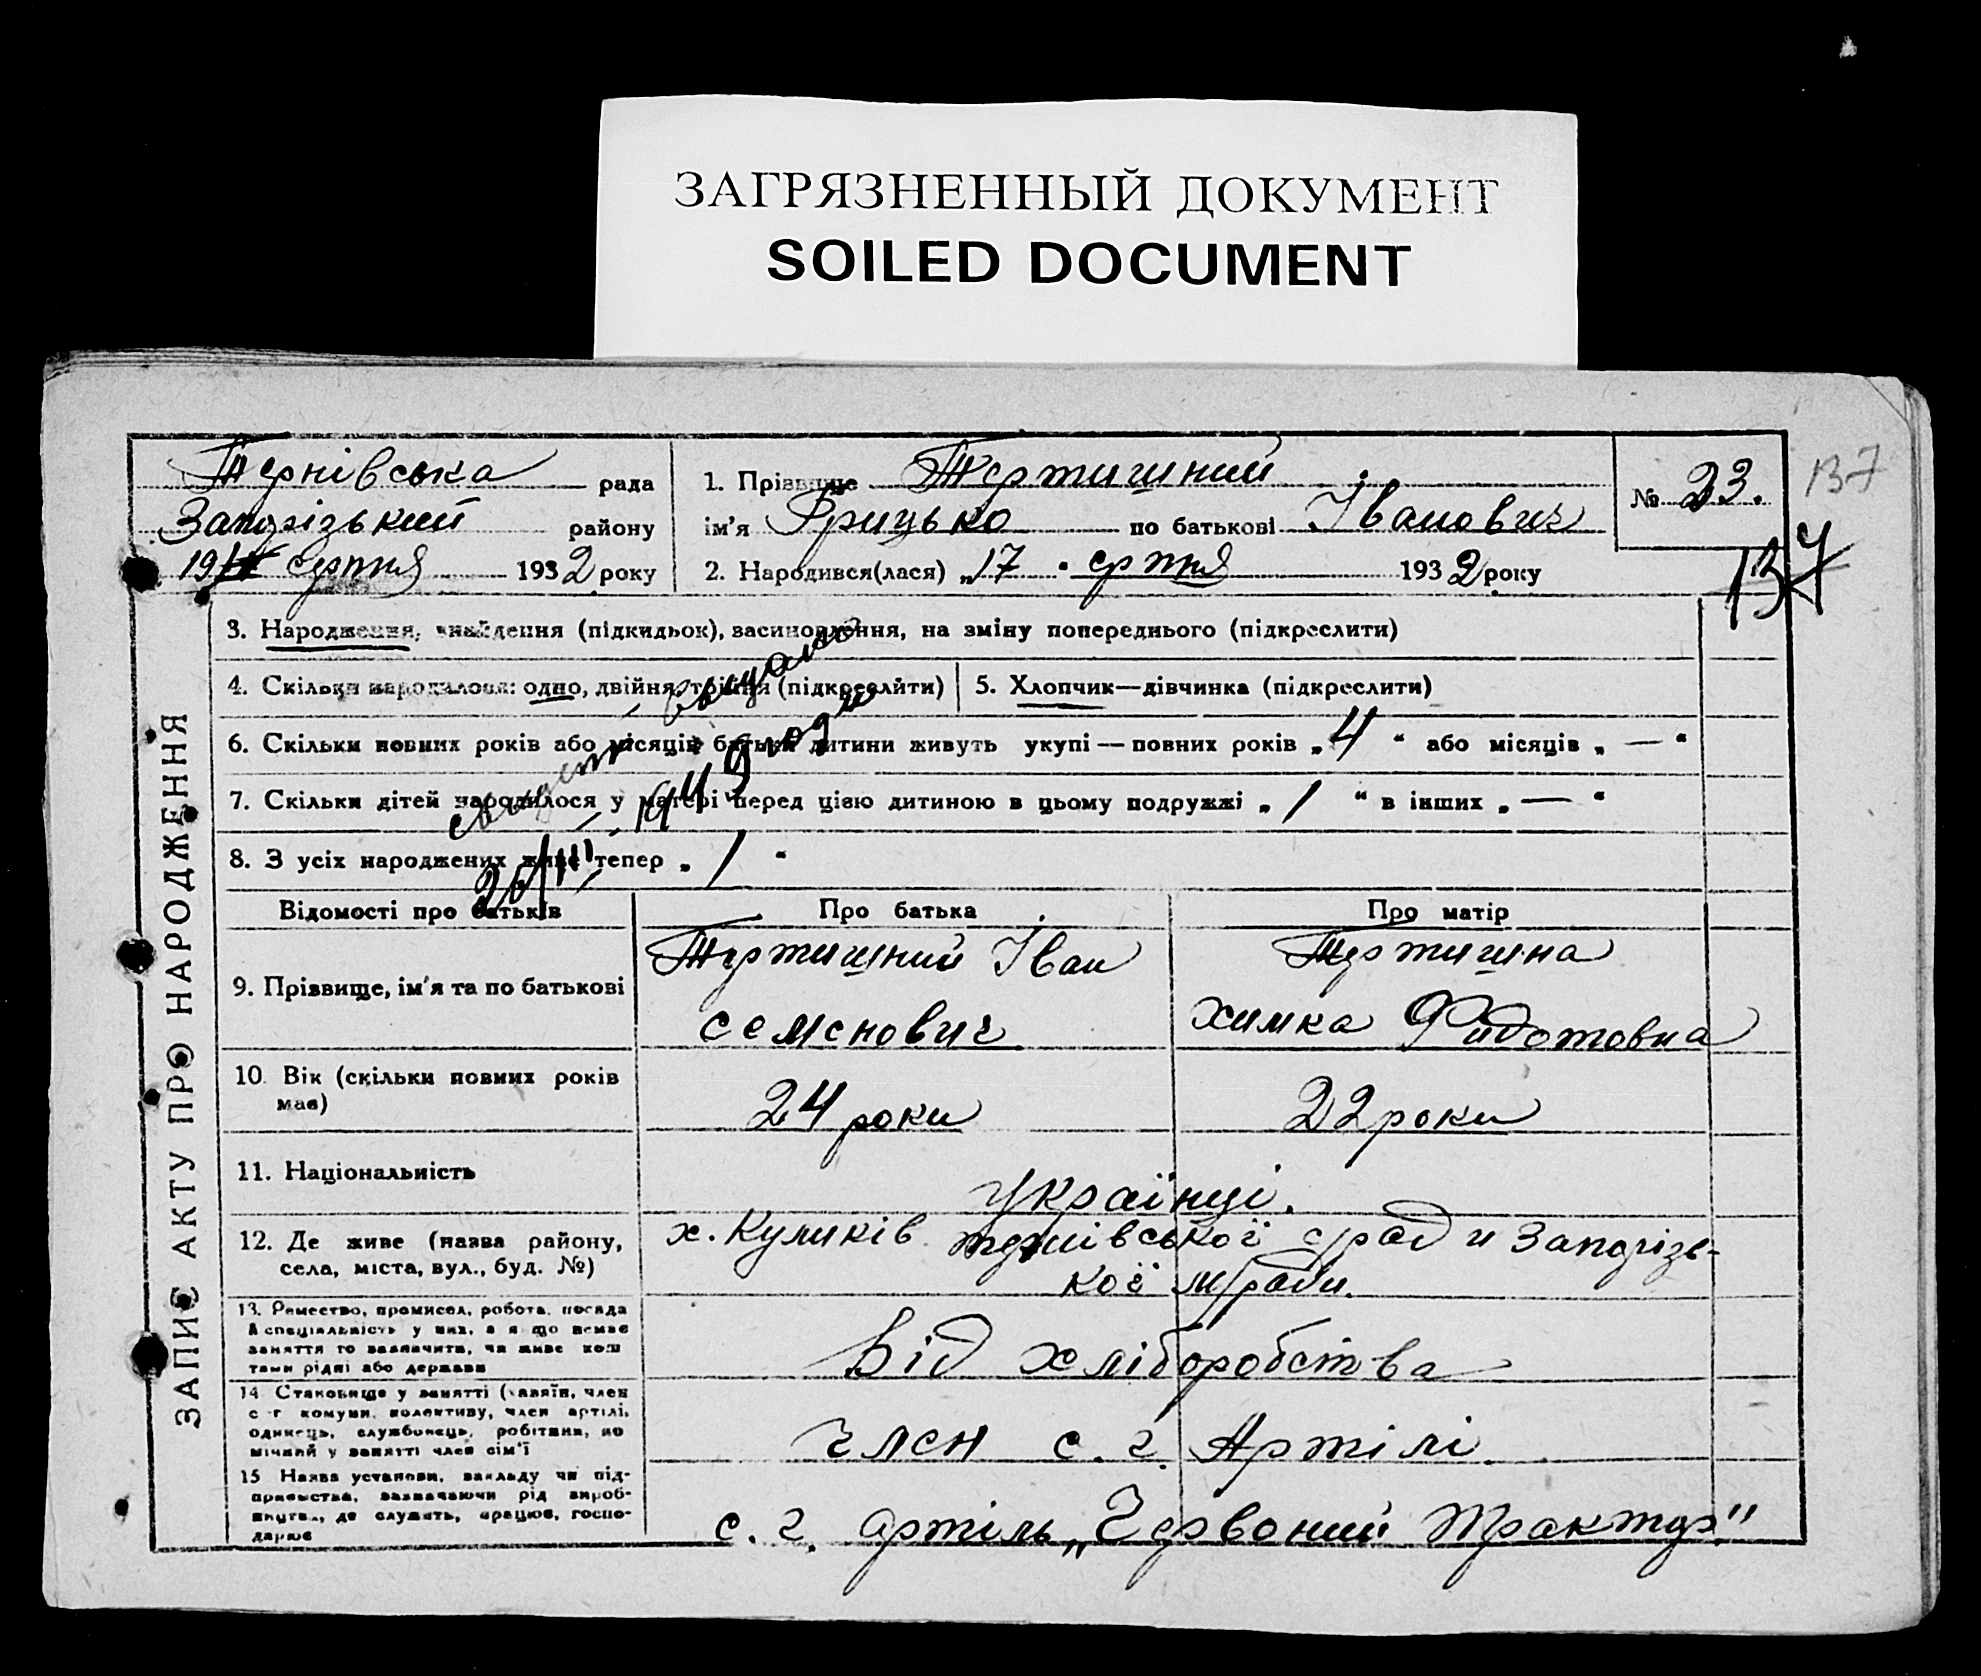 ЗАГРЯЗНЕННЫЙ ДОКУМЕНТ
SOILED DOCUMENT
ЗАПИС АКТУ ПРО НАРОДЖЕННЯ
Тернівська рада
Запорізький району
серпня 1932 року
1. Прізвище Тертишний
ім'я Грицько по батькові Іванович
2. Народився(лася) „17 " серпня 1932 року
№ 23.
137
137
3. Народження, знайдення (підкидьок), засиновлення, на зміну попереднього (підкреслити)
4. Скільки народилося: одно, двійня, трійня (підкреслити)
5. Хлопчик—дівчинка (підкреслити)
6. Скільки повних років або місяців батьки дитини живуть укупі—повних років „ 4 " або місяців „ — "
7. Скільки дітей народилося у матері перед цією дитиною в цьому подружжі „ 1 " в інших „ — "
8. З усіх народжених живе тепер „ 1 "
1949 года
Відомості про батьків
Про батька
Про матір
9. Прізвище, ім'я та по батькові
Тертишний Іван
Семенович
Тертишна
Химка Фидотовна
10. Вік (скільки повних років має)
24 роки
22 роки
11. Національність
Українці.
12. Де живе (назва району, села, міста, вул., буд. №)
х. Куликів Тернівської с/ради Запорізь-
кої м/ради.
13. Ремество, промисел, робота, посада
й спеціяльність у них, а якщо немає
заняття то зазначити, чи живе кош
тами рідні або держави
Від хліборобства
14. Становище у занятті (хазяїн, член
с-г комуни, колективу, член артілі,
одинець, службовець, робітник, по
мічний у занятті член сім'ї
член с. г. Артілі
15. Назва установи, закладу чи під-
приємства, зазначаючи рід вироб-
ництва, де служить, працює, госпо-
дарює
с. г. артіль „Червоний Трактор"